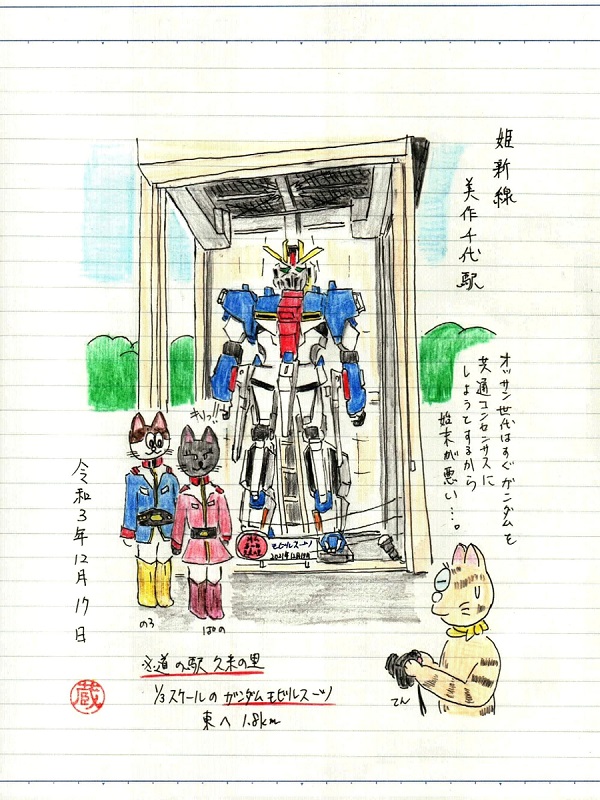 姫新線
美作千代駅
オッサン世代はすぐガンダムを
共通コンセンサスに
しようとするから
始末が悪い…。
キリっ!!
モビルスーツ
令和3年12月17日
のろ
ぱの
てん
※道の駅 久米の里
1/3スケールのガンダムモビルスーツ
東へ 1.8km
蔵